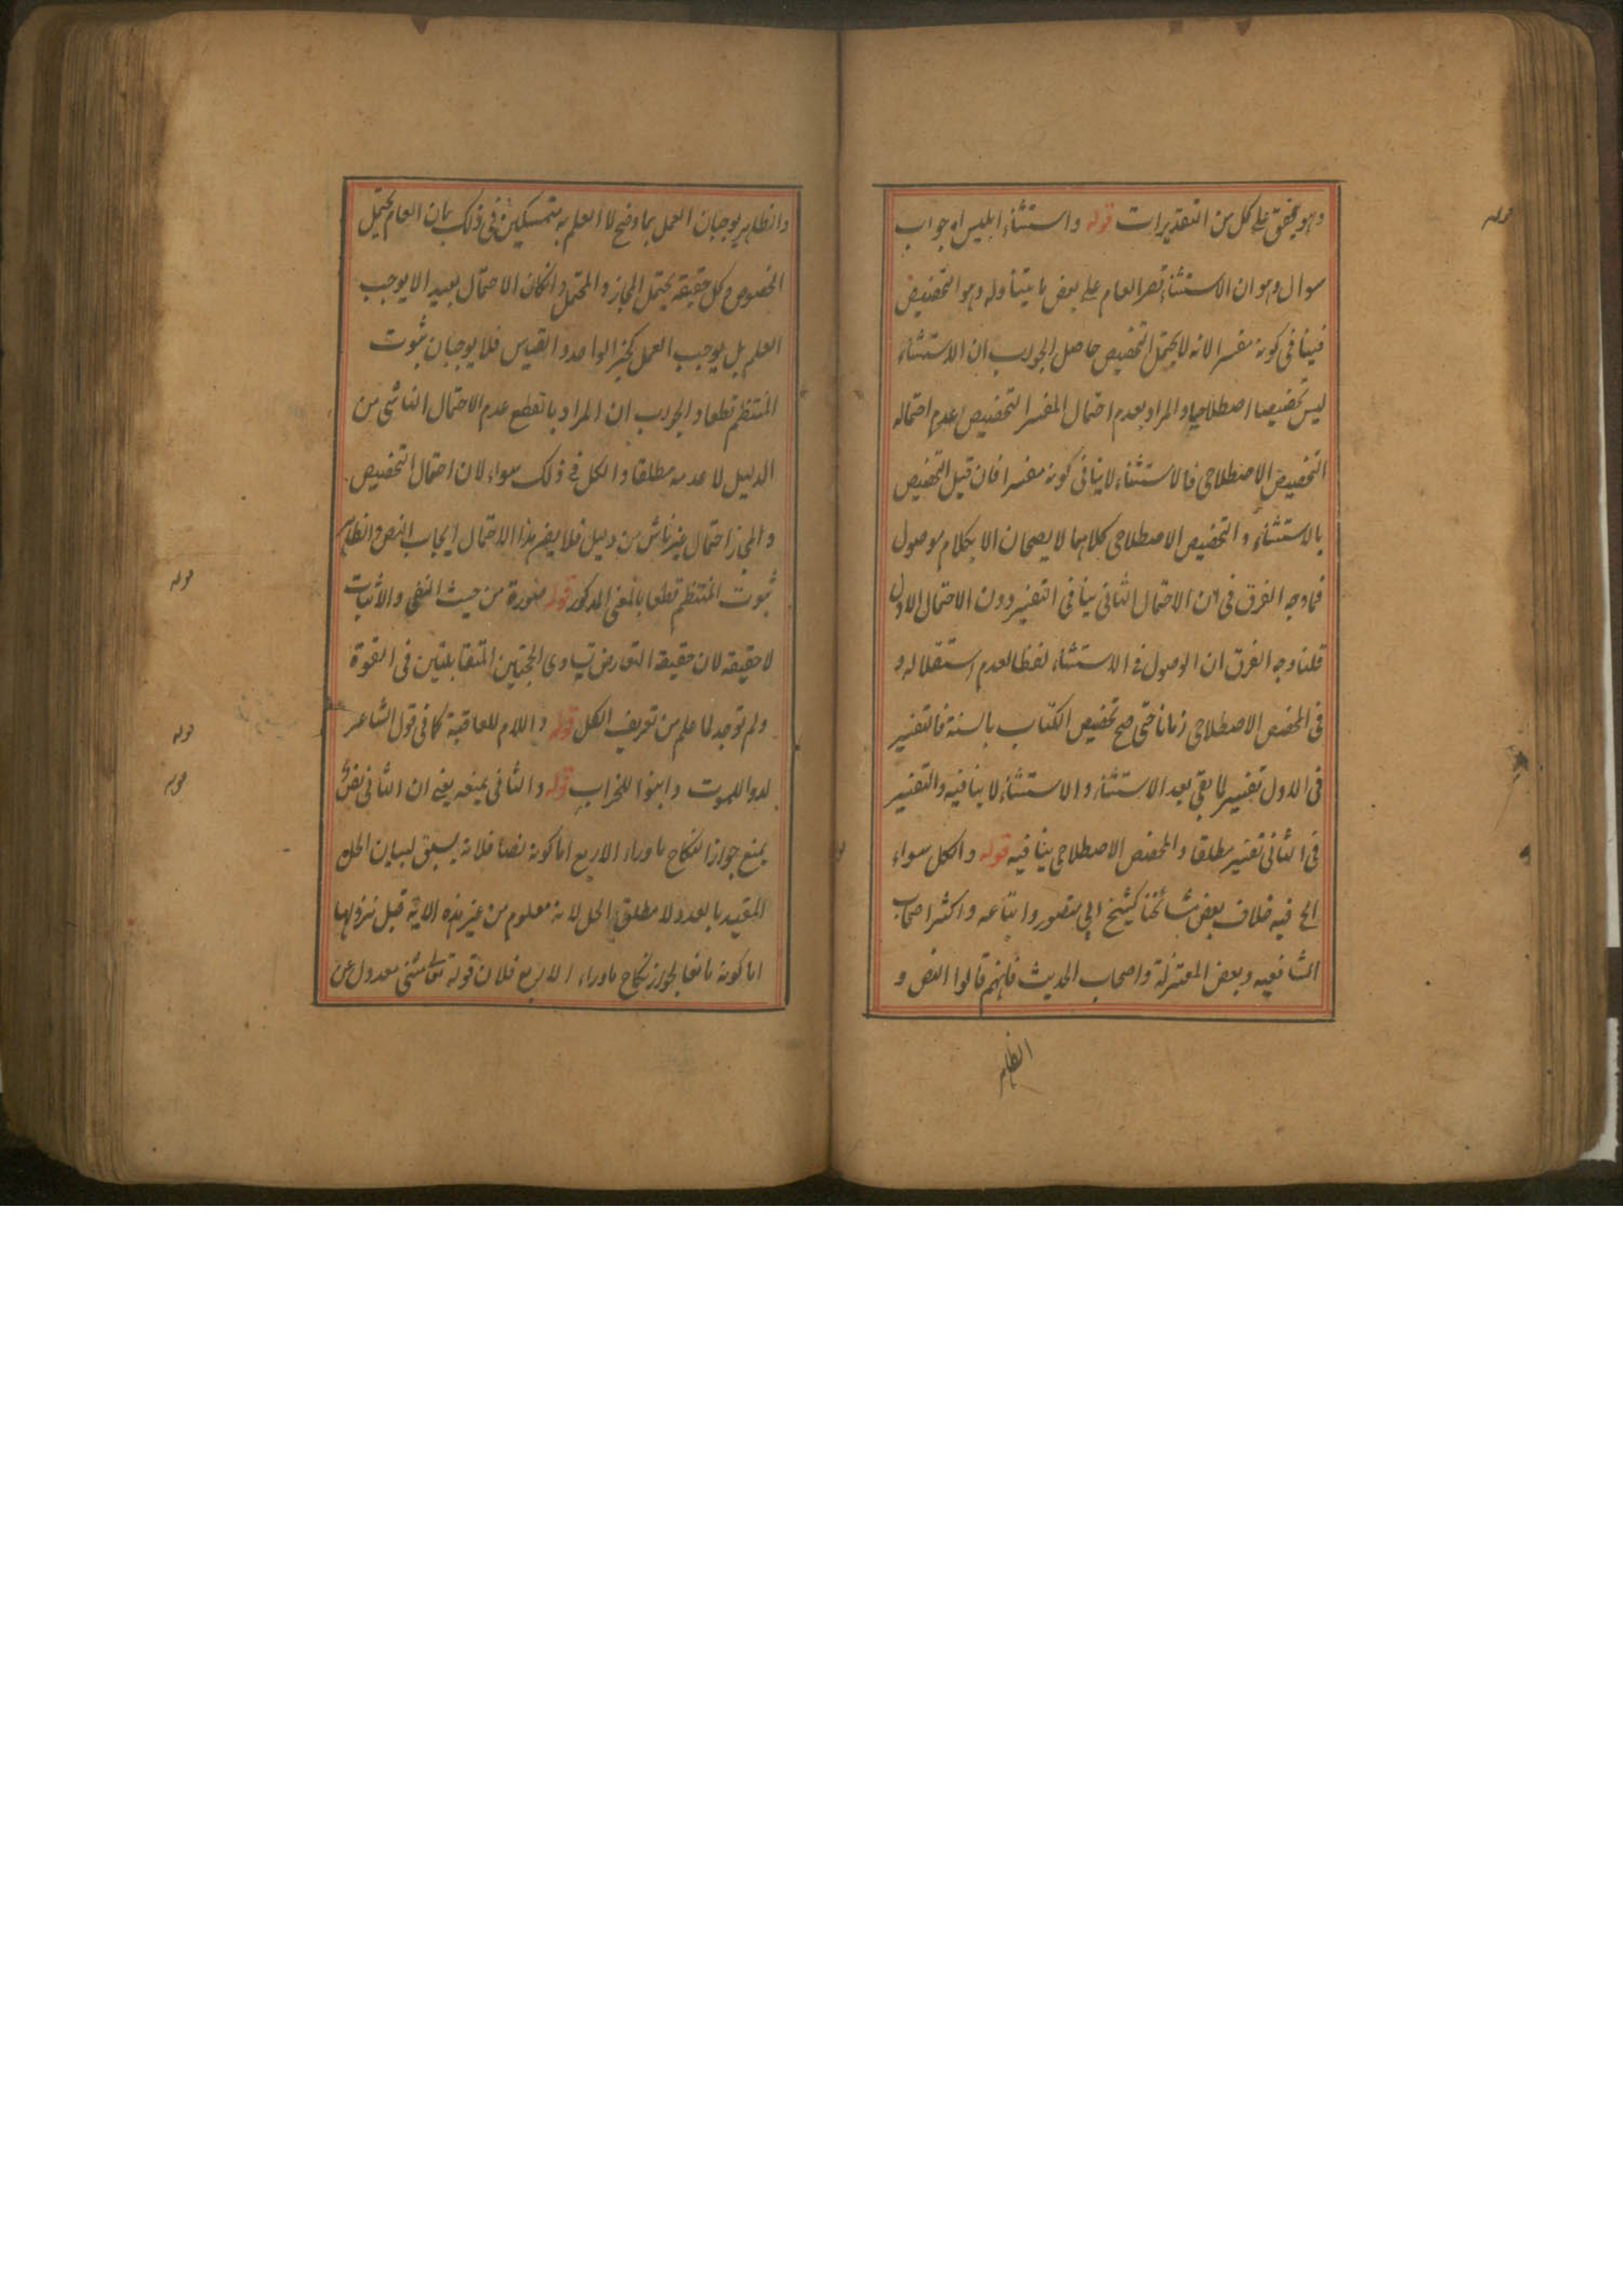 وهو يخفق على كل من التقديرات قوله واستثناء ابليس اه جواب
سوال وهو ان الاستثناء قصر العام على بعض ما يتناوله وهو التخصيص
فينافى كونه مفسرا لانه لا يحتمل التخصيص حاصل الجواب ان الاستثناء
ليس تخصيصا اصطلاحيا والمراد بعدم احتمال المفسر التخصيص عدم احتماله
التخصيص الاصطلاحى فالاستثناء لا ينافى كونه مفسرا فان قيل التخصيص
بالاستثناء والتخصيص الاصطلاحى كلاهما لا يصحان الا بكلام موصول
فما وجه الفرق فى ان الاحتمال الثانى ينافى التفسير دون الاحتمال الاول
قلنا وجه الفرق ان الوصول فى الاستثناء لفظا لعدم استقلاله و
فى المخصص الاصطلاحى زمانا حتى صح تخصيص الكتاب بالسنة فالتفسير
فى الاول تفسير لما بقى بعد الاستثناء والاستثناء لا ينافيه والتفسير
فى الثانى تفسير مطلقا والمخصص الاصطلاحى ينافيه قوله والكل سواء
الخ فيه خلاف بعض مشائخنا كشيخ ابى منصور واتباعه واكثر اصحاب
الشافعيه وبعض المعتزلة واصحاب الحديث فانهم قالوا النص و
الظاهر
والظاهر يوجبان العمل بما وضح لا العلم به متمسكين فى ذلك بان العام يحتمل
الخصوص وكل حقيقه يحتمل المجاز والمحتمل وانكان الاحتمال بعيدا لا يوجب
العلم بل يوجب العمل كخبر الواحد والقياس فلا يوجبان ثبوت
المنتظم قطعا والجواب ان المراد بالقطع عدم الاحتمال الناشى من
الدليل لا عدمه مطلقا والكل فى ذلك سواء لان احتمال التخصيص
والمجاز احتمال غير ناش من دليل فلا يضر هذا الاحتمال ايجاب النص والظاهر
ثبوت المنتظم قطعا بالمعنى المذكور قوله صورة من حيث النفى والاثبات
لا حقيقه لان حقيقة التعارض تساوى الحجتين المتقابلتين فى القوة
ولم توجد لما علم من تعريف الكل قوله واللام للعاقبة كما فى قول الشاعر
لدوا للموت وابنوا للخراب قوله والثانى يمنعه يعنى ان الثانى نص
يمنع جواز النكاح ما وراء الاربع اما كونه نصا فلانه يسبق لبيان الحل
المقيد بالعدد لا مطلق الحل لانه معلوم من غير هذه الاية قبل نزولها
اما كونه مانعا لجواز نكاح ما وراء الاربع فلان قوله تعالى مثنى معدول عن
قوله
قوله
قوله
قوله